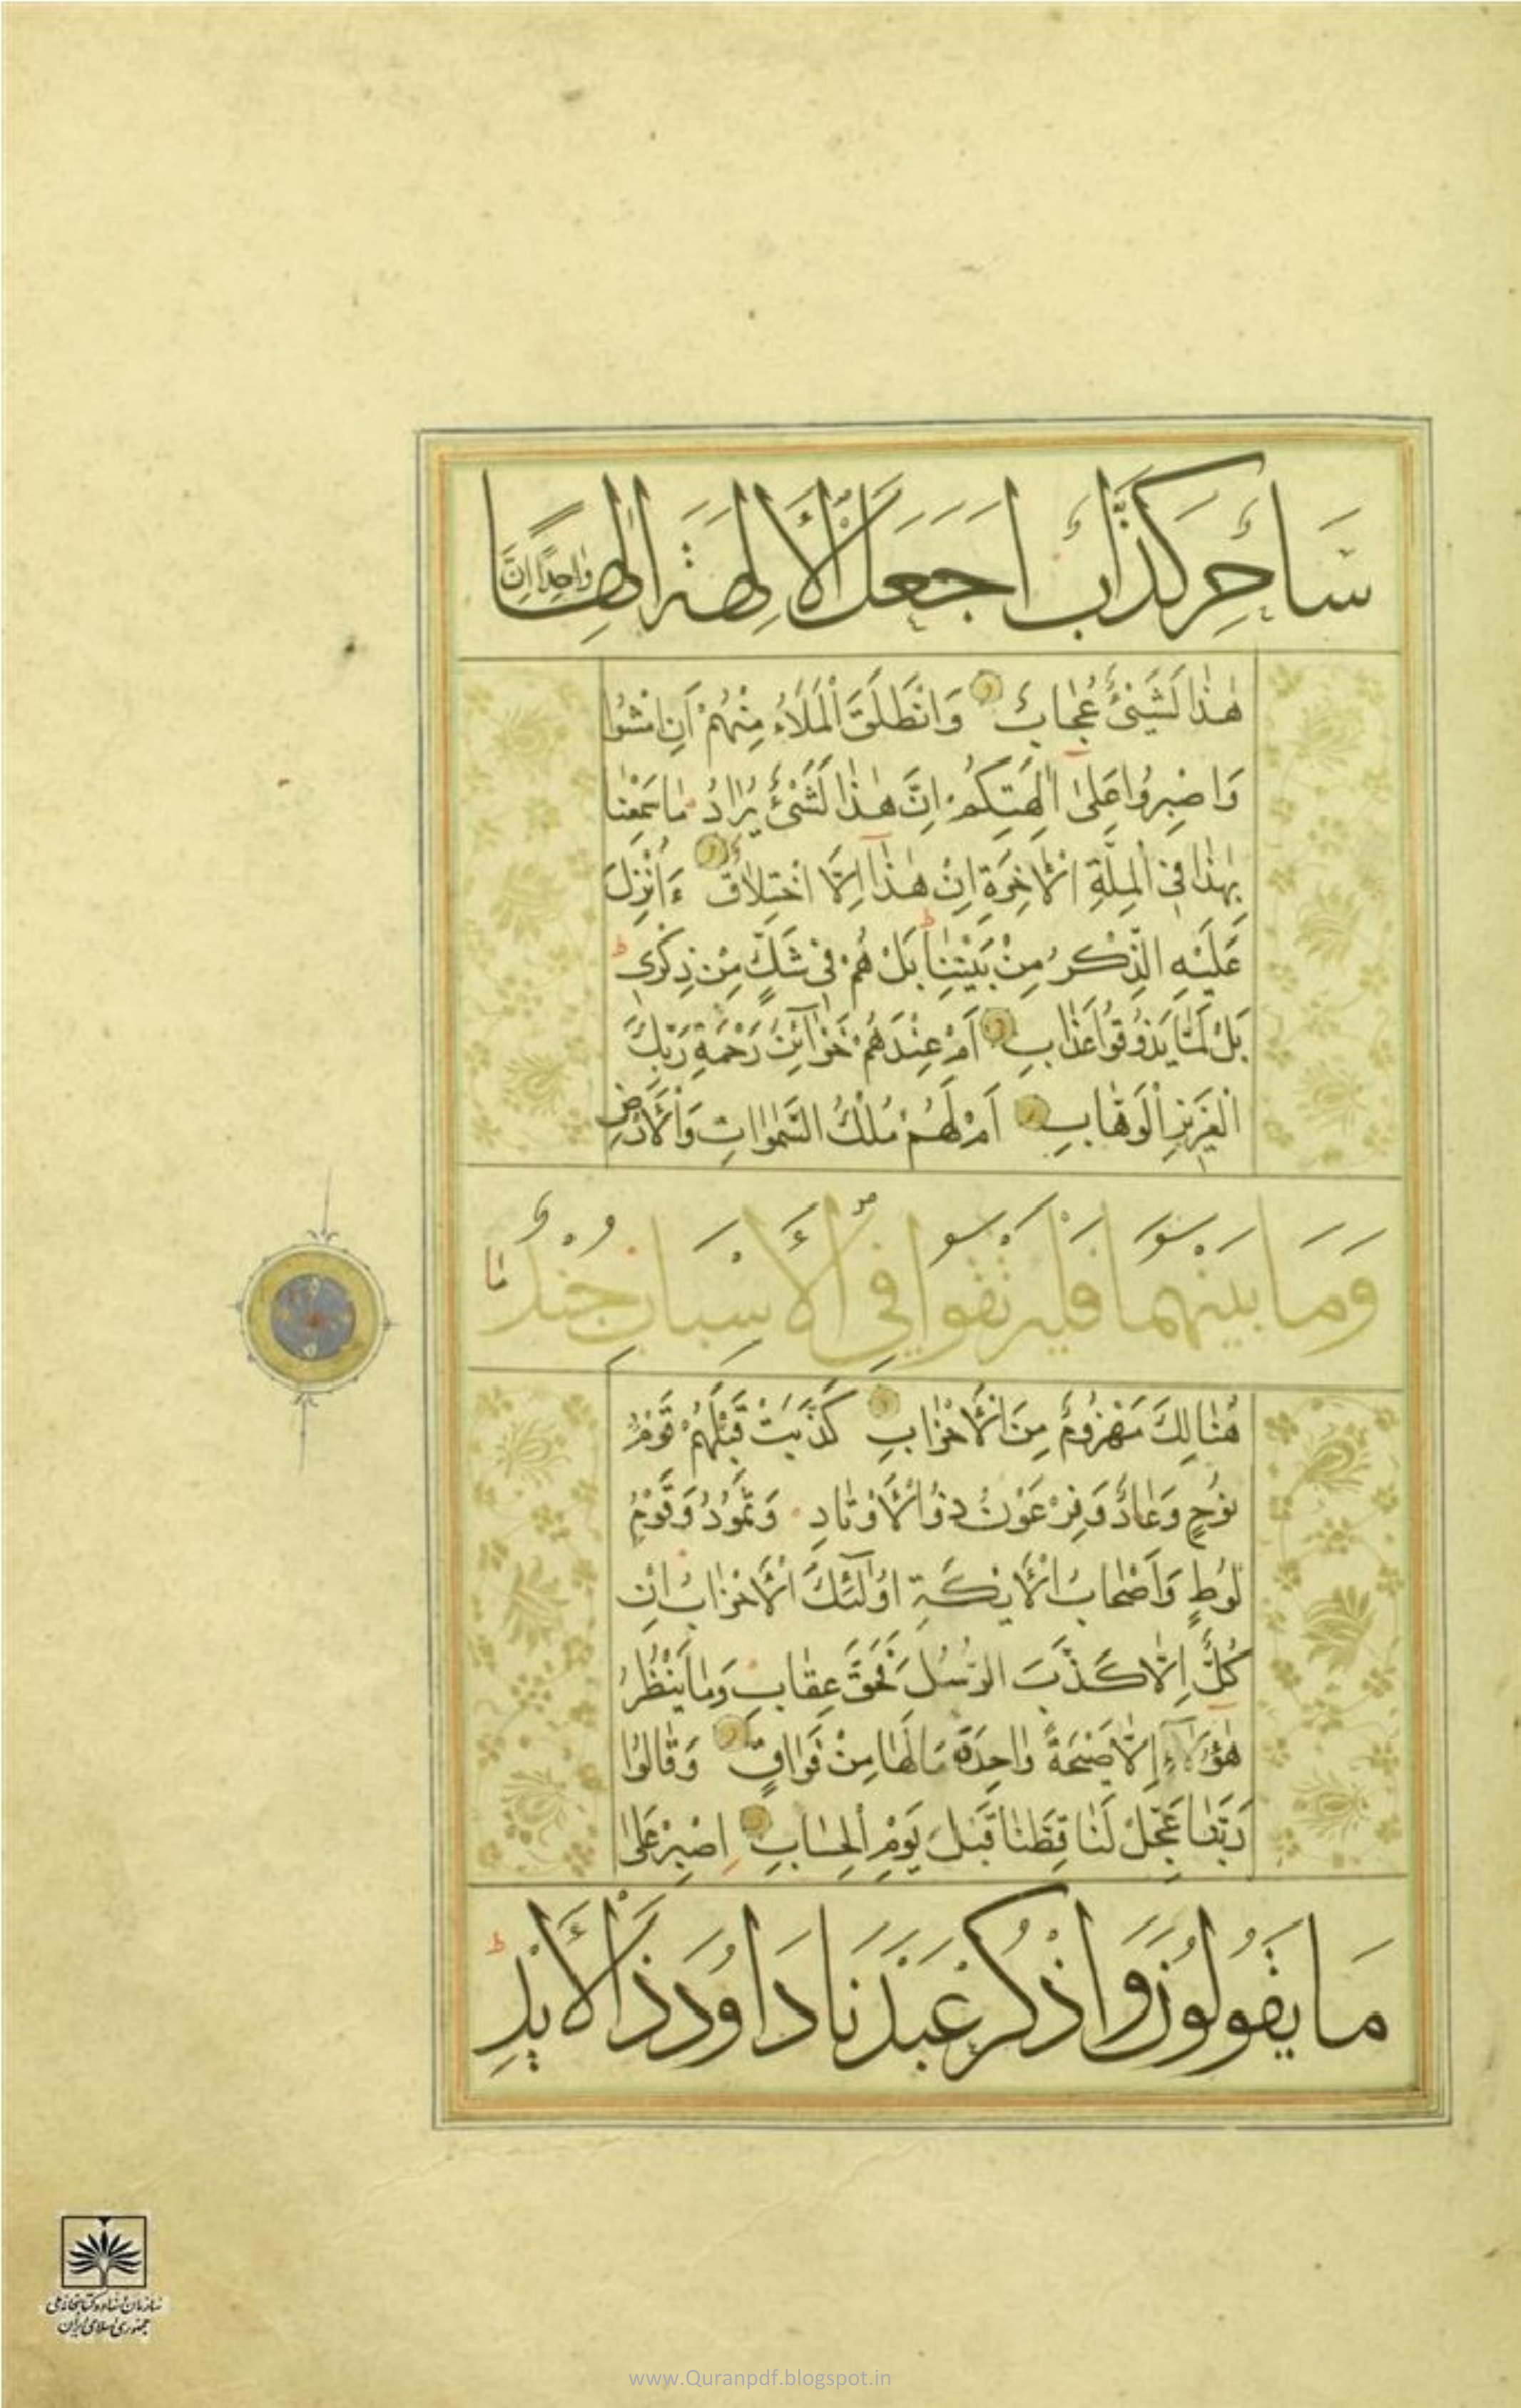 سَاحِرٌ كَذَّابٌ اَجَعَلَ الْاٰلِهَةَ اِلٰهًا وٰاحِدًا اِنَّ
هٰذٰا لَشَيْئٌ عُجٰابٌ وَانْطَلَقَ الْمَلَاُء مِنْهُمْ اَنِ امْشُوا
وَاصْبِرُوا عَلىٰ اٰلِهَتِكُمْ اِنَّ هٰذٰا لَشَيْئٌ يُرٰادُ مٰا سَمِعْنٰا
بِهٰذٰا فِي الْمِلَّةِ الْاٰخِرَةِ اِنْ هٰذٰا اِلَّا اخْتِلٰاقٌ ءَاُنْزِلَ
عَلَيْهِ الذِّكْرُ مِنْ بَيْنِنٰا بَلْ هُمْ فِي شَكٍّ مِنْ ذِكْرِي
بَلْ لَمَّا يَذُوقُوا عَذٰابِ اَمْ عِنْدَهُمْ خَزٰائِنُ رَحْمَةِ رَبِّكَ
الْعَزِيزِ الْوَهّٰابِ اَمْ لَهُمْ مُلْكُ السَّمٰوٰاتِ وَالْاَرْضِ
وَمَا بَيْنَهُمَا فَلْيَرْتَقُوا فِي الْاَسْبَابِ جُنْدٌ مٰا
هُنٰالِكَ مَهْزُومٌ مِنَ الْاَحْزٰابِ كَذَّبَتْ قَبْلَهُمْ قَوْمُ
نُوحٍ وَعٰادٌ وَفِرْعَوْنُ ذُو الْاَوْتٰادِ وَثَمُودُ وَقَوْمُ
لُوطٍ وَاَصْحٰابُ الْاَيْكَةِ اُولٰئِكَ الْاَحْزٰابُ اِنْ
كُلٌّ اِلَّا كَذَّبَ الرُّسُلَ فَحَقَّ عِقٰابِ وَمٰا يَنْظُرُ
هٰؤُلَاءِ اِلَّا صَيْحَةً وٰاحِدَةً مٰا لَهٰا مِنْ فَوٰاقٍ وَقٰالُوا
رَبَّنٰا عَجِّلْ لَنٰا قِطَّنٰا قَبْلَ يَوْمِ الْحِسٰابِ اِصْبِرْ عَلىٰ
مَا يَقُولُونَ وَاذْكُرْ عَبْدَنَا دَاوُدَ ذَا الْاَيْدِ
سازمان اسناد و کتابخانه ملی
جمهوری اسلامی ایران
www.Quranpdf.blogspot.in